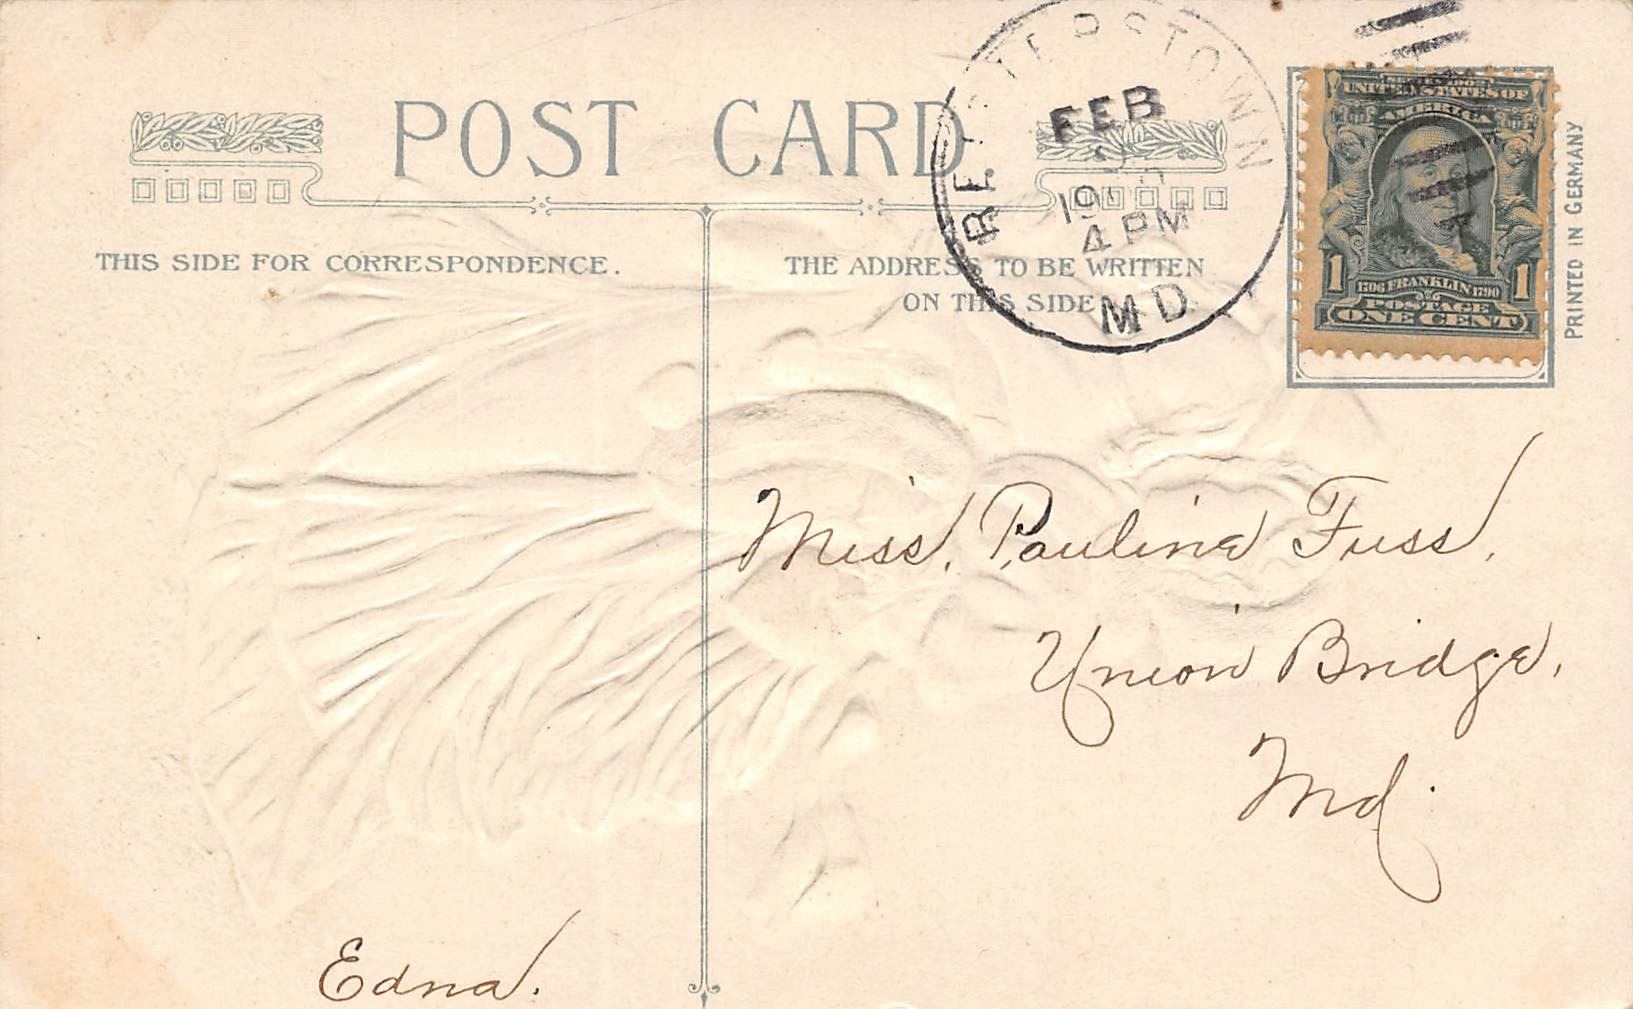 POST CARD
THIS SIDE FOR CORRESPONDENCE.
THE ADDRESS TO BE WRITTEN
ON THIS SIDE
REISTERSTOWN
FEB
4 PM
MD.
UNITED STATES OF
AMERICA
1 1706 FRANKLIN 1790 1
POSTAGE
ONE CENT
PRINTED IN GERMANY
Miss. Pauline Fuss,
Union Bridge,
Md.
Edna.